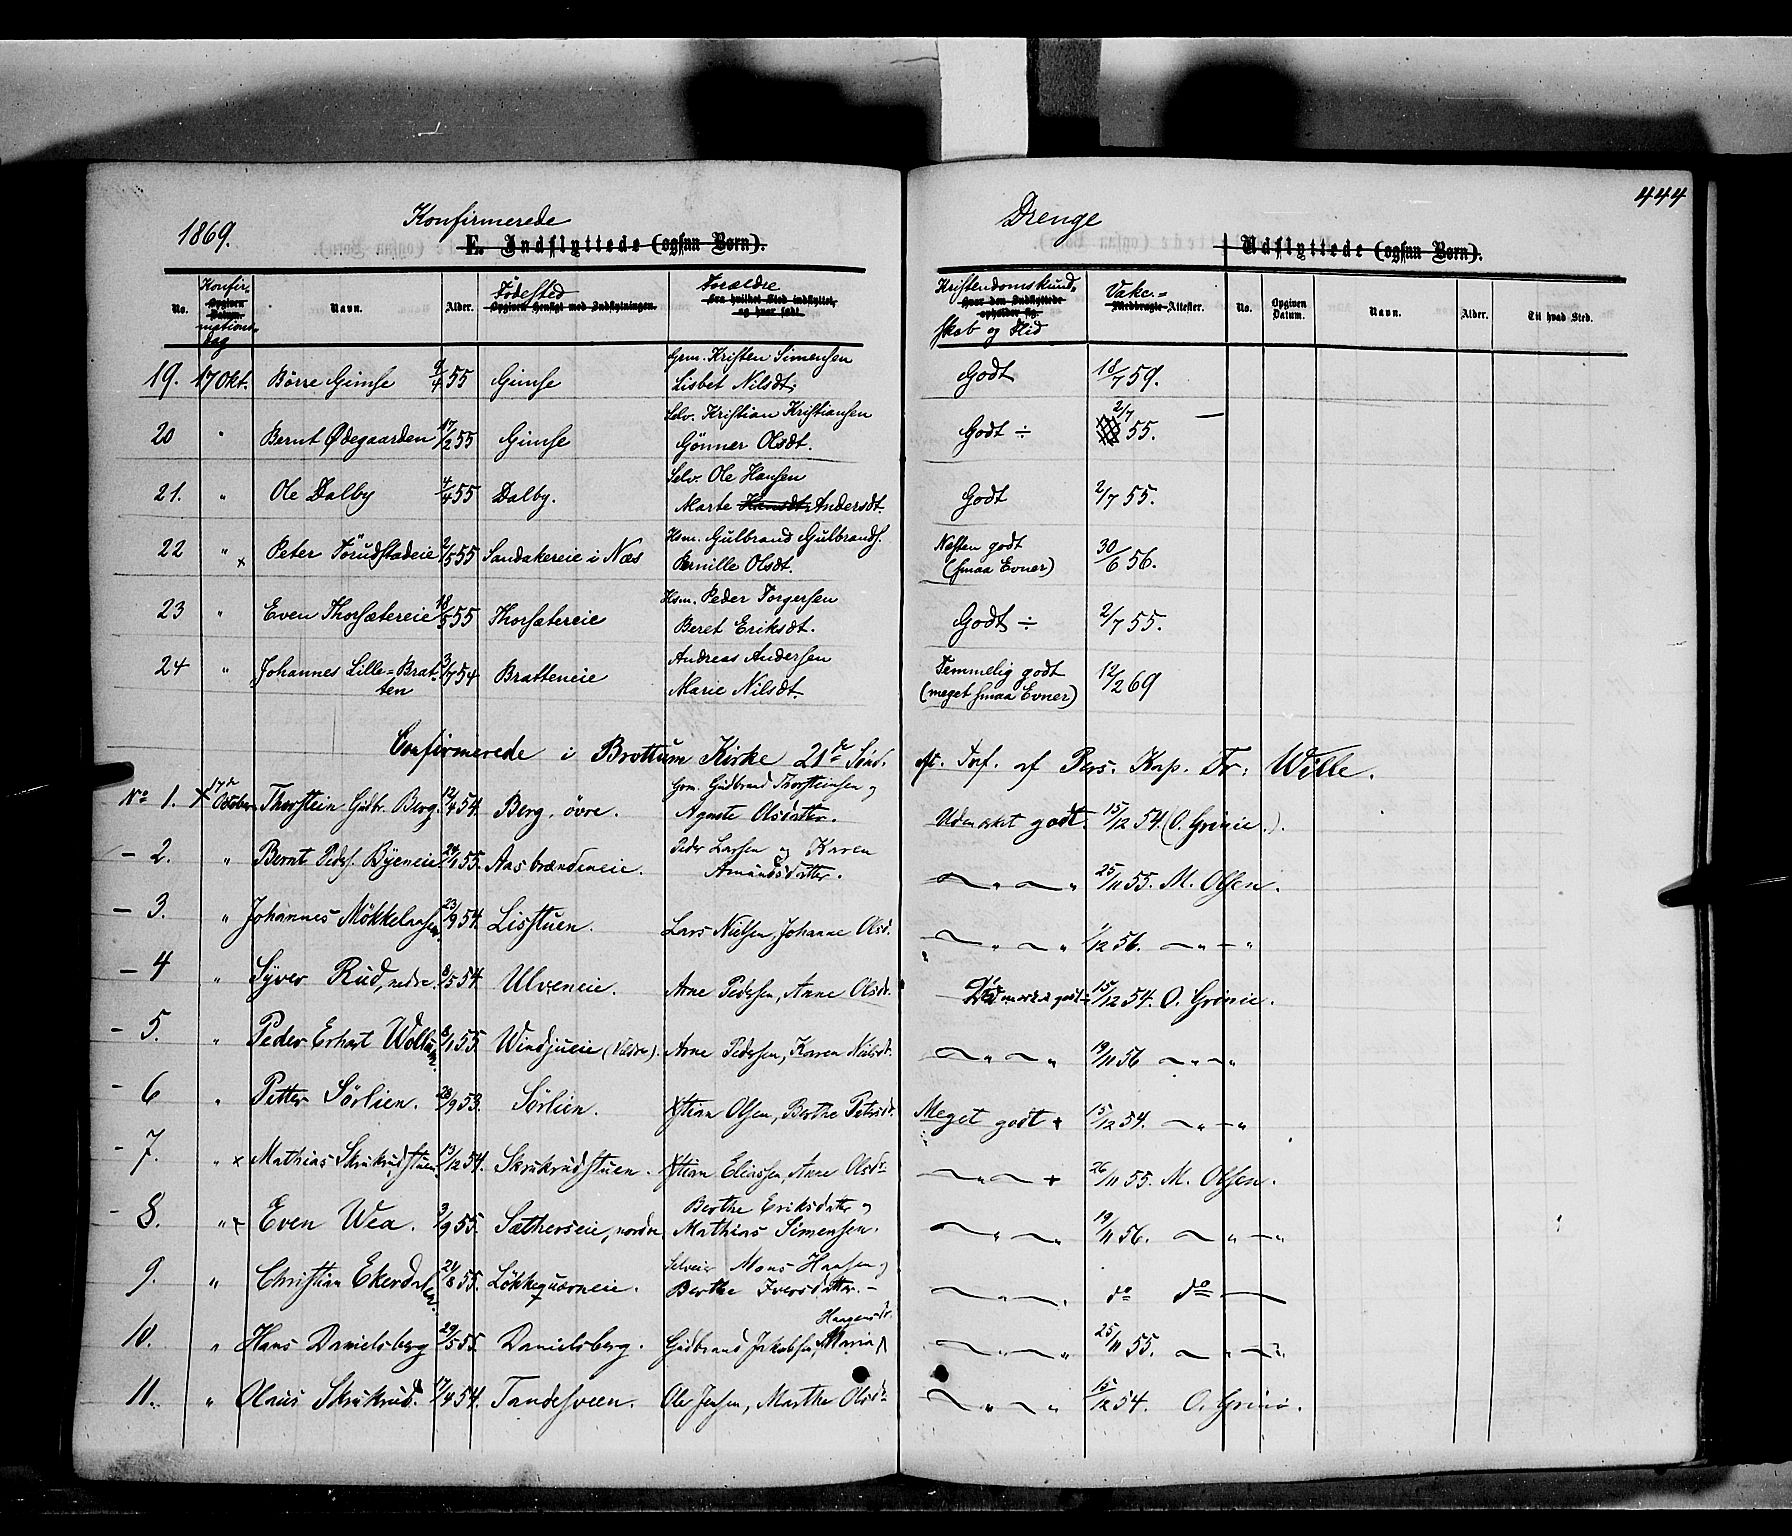 444
1869. Konfirmerede Drenge
E. Indflyttede (ogsaa Børn). Udflyttede (ogsaa Børn).
No. Konfirmationsdag Opgiven Datum. Navn. Alder. Fødested Opgiven Hensigt med Indflytningen. Forældre Fra hvilket Sted indflyttet, og hvor født. Kristendomskundskab og Flid Hvor den Indflyttede opholder sig. Vakc.= Medbragte Attester. No. Opgiven Datum. Navn. Alder. Til hvad Sted.
19. 17 Okt. Børre Gimse 9/4 55 Gimse Grm. Kristen Simensen Lisbet Nilsdt. Godt 18/7 59.
20 " Bernt Ødegaarden 17/2 55 Gimse Selv. Kristian Kristiansen Gønner Olsdt. Godt ÷ 2/7 55.
21. " Ole Dalby 4/4 55 Dalby. Selv. Ole Hansen Marte Hansdt. Andersdt. Godt 2/7 55.
22 " x Peter Törudstadeie 2/5 55 Sandakereie i Næs Hsm. Gulbrand Gulbrands. Pernille Olsdt. Næsten godt (smaa Evner) 30/6 56.
23 " Even Thorsætereie 18/5 55 Thorsætereie Hsm. Peder Torgersen Beret Eriksdt. Godt ÷ 2/7 55.
24 " Johannes Lille=Bratten 3/7 54 Bratteneie Andreas Andersen Marie Nilsdt. Temmelig godt (meget smaa Evner) 12/2 69
Confirmerede i Brottum Kirke 21de Sönd. ft. Tref. af Pers. Kap. Fr. Wille.
No 1. x 17de October Thorstein Gudbr. Berg. 12/4 54. Berg, övre. Grm. Gudbrand Thorsteinsen og Agnete Olsdatter. Udmærket godt. 15/12 54. (O. Grönie.).
– 2. " Bernt Peds. Byeneie 24/1 55. Aasbrændeneie. Peder Larsen og Karen Amundsdatter. " " 25/11 55. M. Olsen.
– 3. " Johannes Mökkelaasen 23/9 54. Lisstuen. Lars Nielsen, Johanne Olsd. " " 1/12 56. " "
– 4 " Syver Rud, nedre. 8/5 54. Ulveneie. Arne Pedersen, Anne Olsdr. Udmærket godt 15/12 54. O. Grönie.
– 5. " Peder Erhart Wollum 8/1 55. Windjueie (Valdre). Arne Pedersen, Karen Nielsdr. " " 19/11 56 " "
– 6 " Petter Sörlien. 28/9 53. Sörlien. Xstian Olsen, Berthe Petersdr. Meget godt + 15/12 54. " "
– 7. " x Mathias Skrukrudstuen 13/12 54. Skrukrudstuen. Xstian Eliassen, Anne Olsdr " + 26/11 55. M. Olsen.
– 8. " x Even Wea. 3/9 55. Sætherseie, nordre Berthe Eriksdatter og Mathias Simensen. " " 19/11 56. " "
9. " Christian Ekerdalen 24/8 55. Lökkeqværneie. Selveier Mons Hansen og Berthe Iversdatter. – " " do do
10. " Hans Danielsberg 29/5 55. Danielsberg. Gudbrand Jakobsen, Maria Haagensdr. " " 25/11 55. " "
11. " Olaus Skrukrud. 17/4 54. Tandesveen. Ole Jensen, Marthe Olsdr " " 15/12 54. O. Grönie.